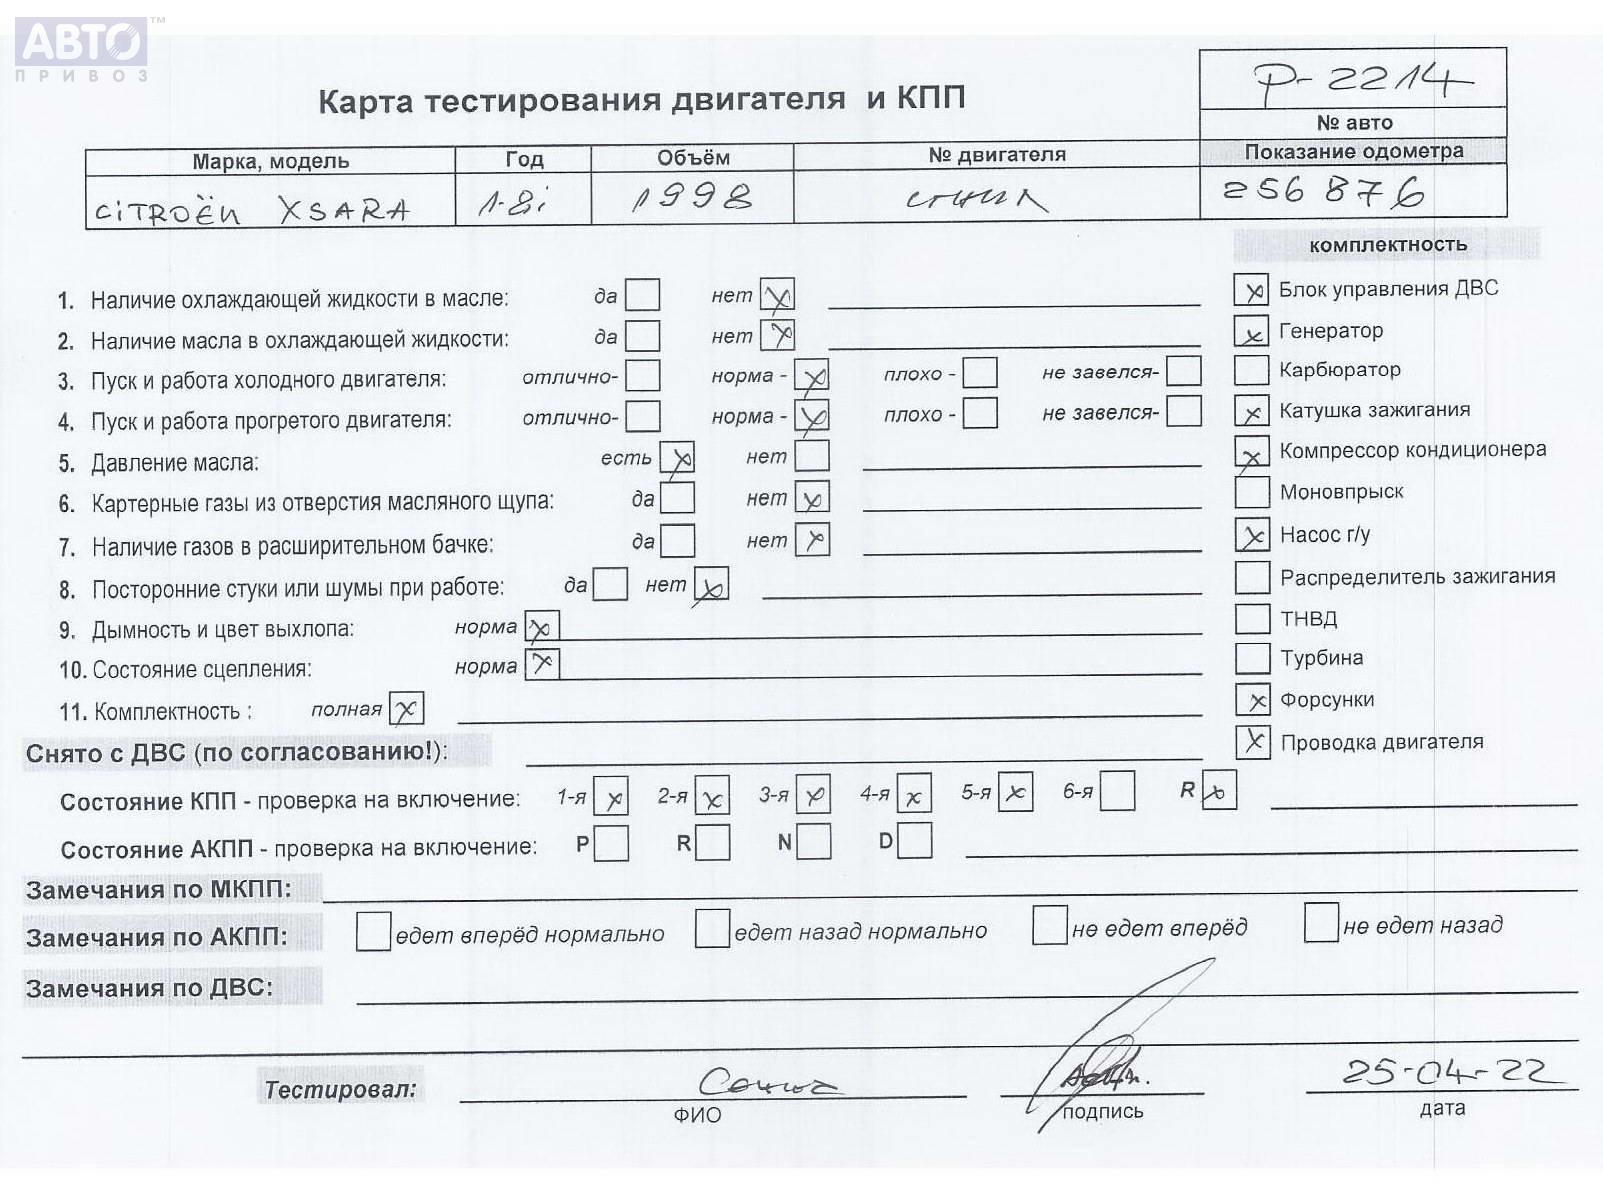 АВТО™
ПРИВОЗ
Р-2214
Карта тестирования двигателя и КПП
№ авто
Марка, модель Год Объём № двигателя Показание одометра
CiTROËN XSARA 1-8i 1998 256876
комплектность
1. Наличие охлаждающей жидкости в масле: да нет x
x Блок управления ДВС
2. Наличие масла в охлаждающей жидкости: да нет x
x Генератор
3. Пуск и работа холодного двигателя: отлично- норма - x плохо - не завелся-
Карбюратор
4. Пуск и работа прогретого двигателя: отлично- норма - x плохо - не завелся-
x Катушка зажигания
5. Давление масла: есть x нет
x Компрессор кондиционера
6. Картерные газы из отверстия масляного щупа: да нет x
Моновпрыск
7. Наличие газов в расширительном бачке: да нет x
x Насос г/у
8. Посторонние стуки или шумы при работе: да нет x
Распределитель зажигания
9. Дымность и цвет выхлопа: норма x
ТНВД
10. Состояние сцепления: норма x
Турбина
11. Комплектность : полная x
x Форсунки
Снято с ДВС (по согласованию!):
x Проводка двигателя
Состояние КПП - проверка на включение: 1-я x 2-я x 3-я x 4-я x 5-я x 6-я R x
Состояние АКПП - проверка на включение: P R N D
Замечания по МКПП:
Замечания по АКПП: едет вперёд нормально едет назад нормально не едет вперёд не едет назад
Замечания по ДВС:
Тестировал: 25-04-22
ФИО подпись дата